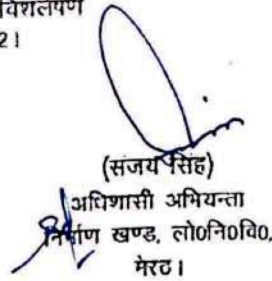 विश्लेषण
2।
(संजय सिंह)
अधिशासी अभियन्ता
निर्माण खण्ड, लो0नि0वि0,
मेरठ।